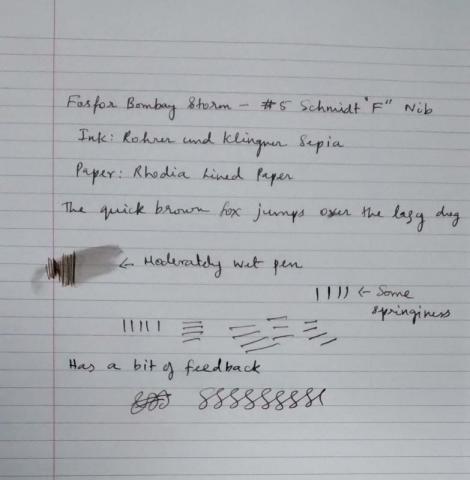 Fosfor Bombay Storm - #5 Schmidt "F" Nib
Ink: Rohrer und Klingner Sepia
Paper: Rhodia Lined Paper
The quick brown fox jumps over the lazy dog
← Moderately wet pen
← Some
springiness
Has a bit of feedback